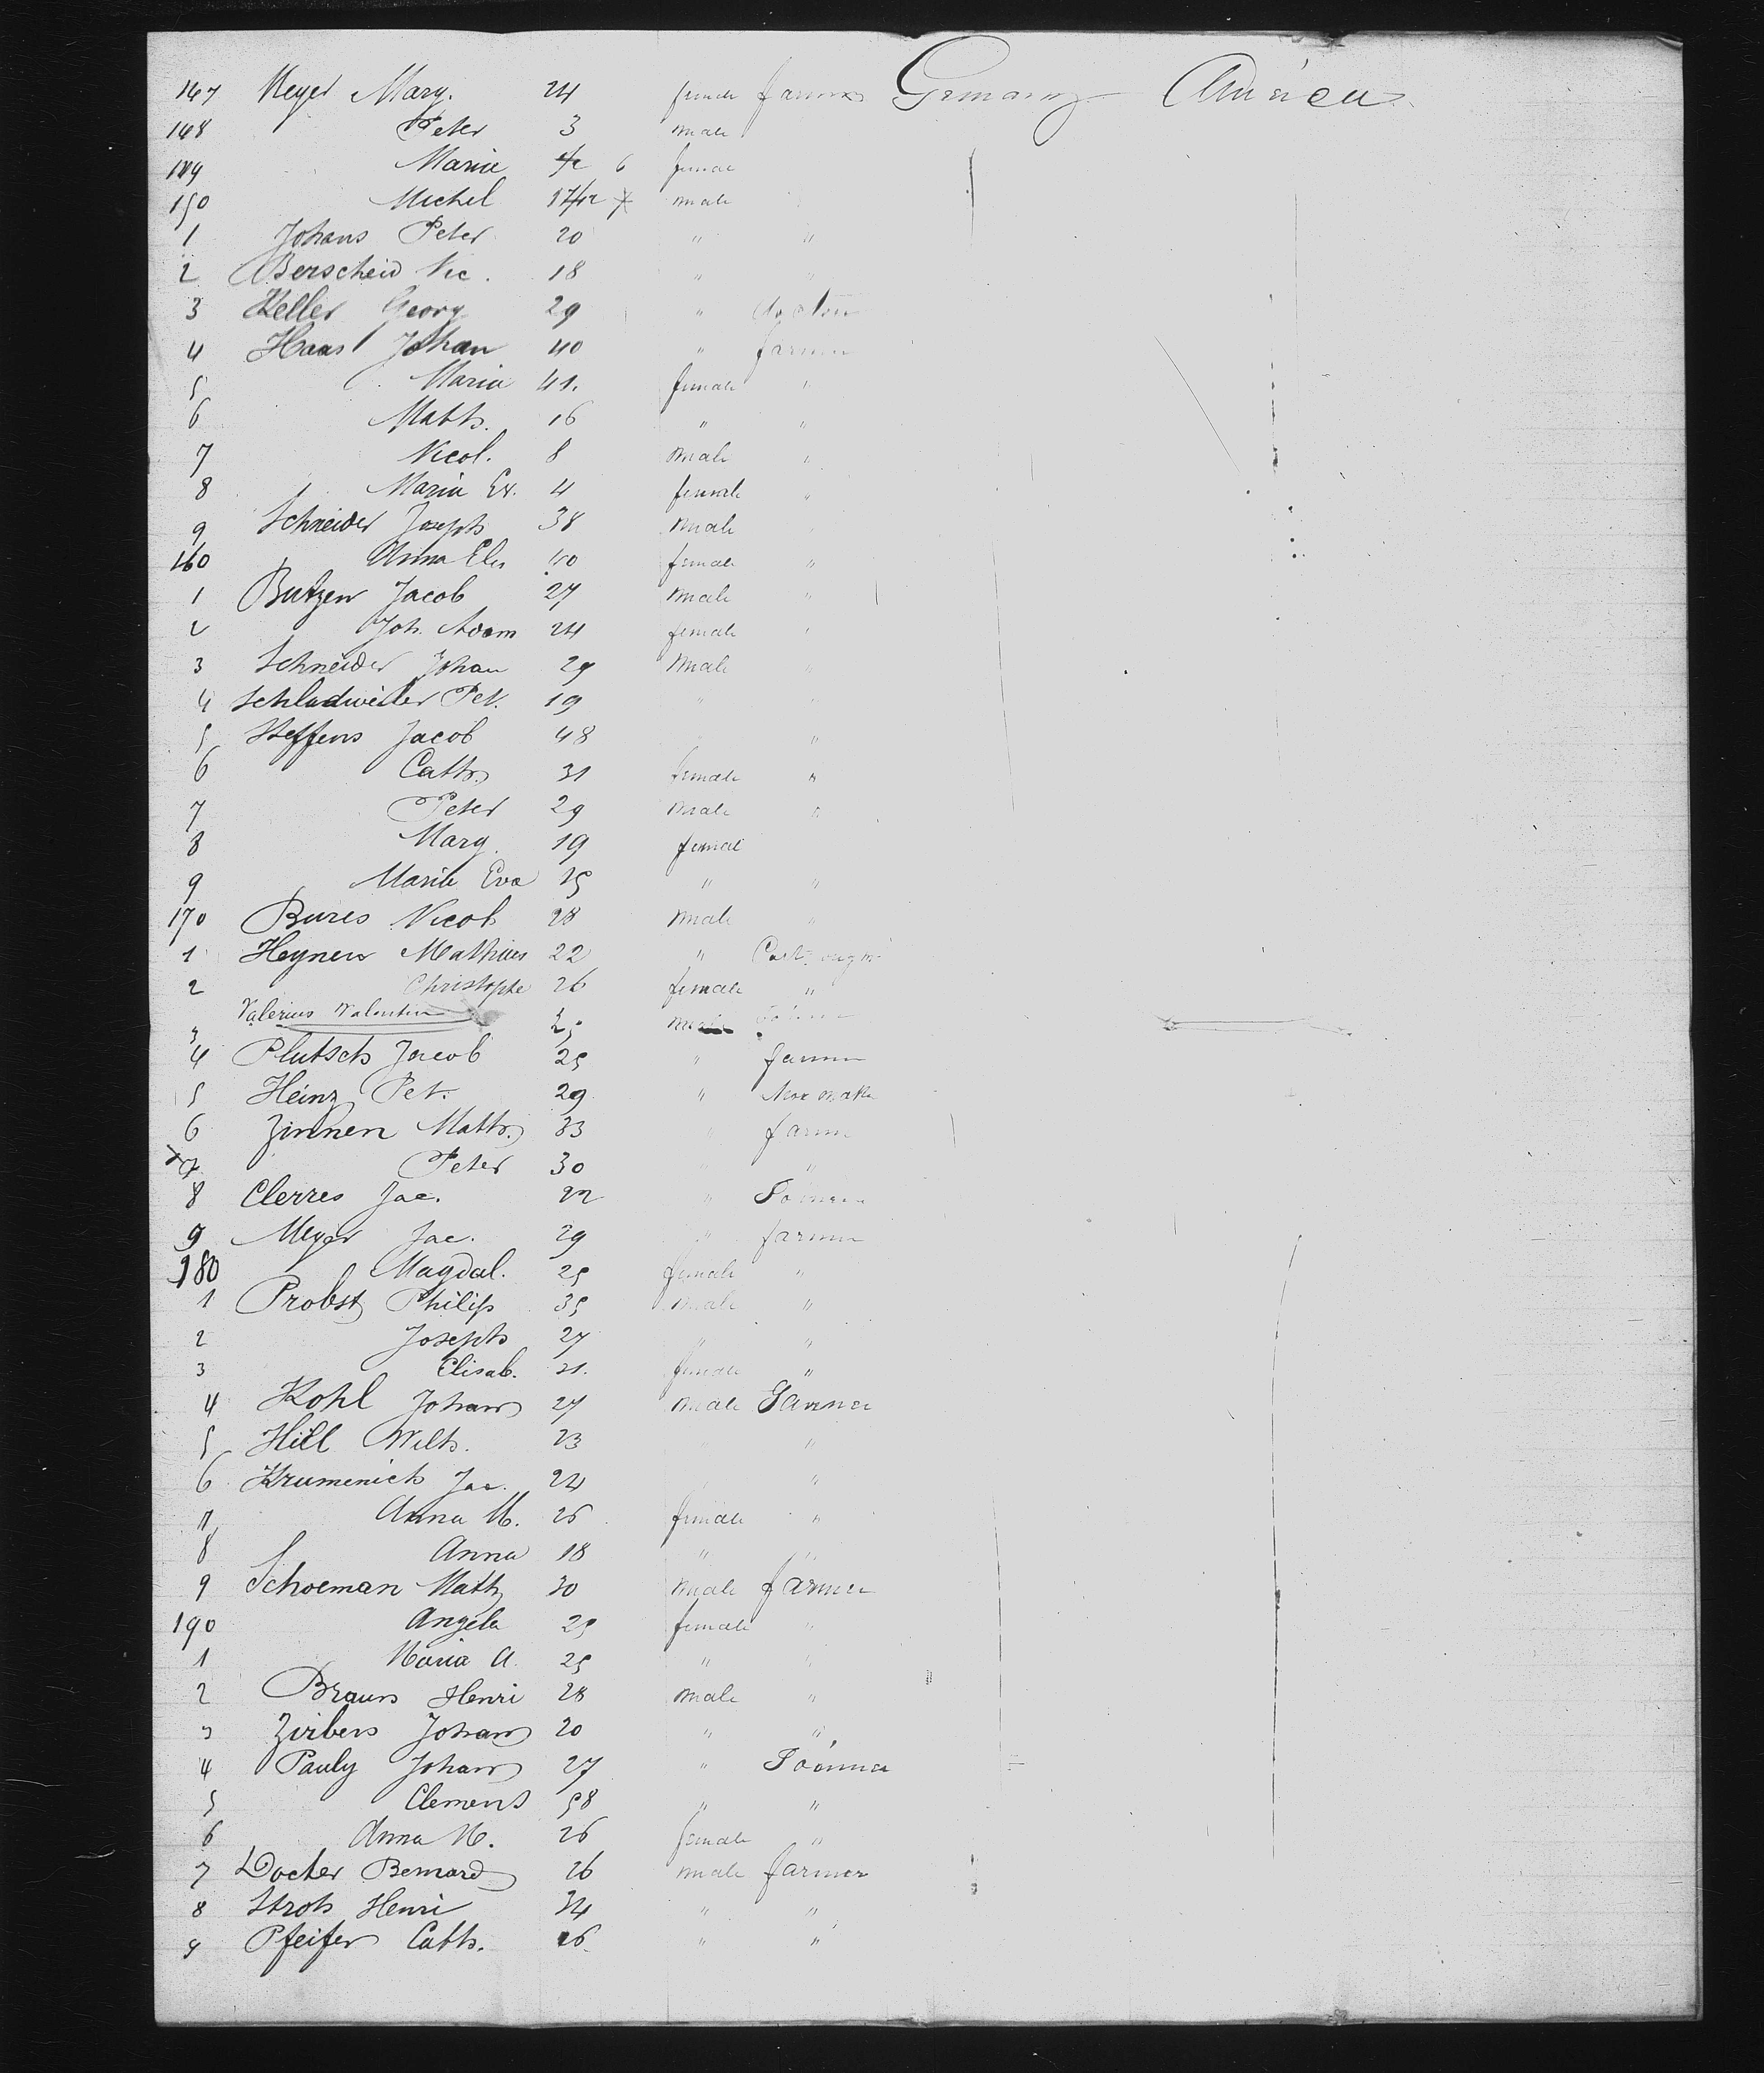 147 Meyer Mary. 24 female farmer Germany America
148 Peter 3 male
149 Maria 6 female
150 Michel male
1 Johans Peter 20 " "
2 Berscheid Nic. 18 " "
3 Keller Georg 29 "
4 Haas Johan 40 " farmer
5 Maria 41. female "
6 Matth. 16 " "
7 Nicol. 8 male "
8 Maria Ev. 4 female "
9 Schneider Joseph 38 male
160 Anna Elis 40 female "
1 Butzen Jacob 27 male "
2 Joh. Adam 24 female "
3 Schneider Johan 29 male "
4 Schladweiler Pet. 19 " "
5 Steffens Jacob 48 "
6 Cath. 31 female "
7 Peter 29 male "
8 Marg. 19 female
9 Maria Eva 15 " "
170 Bures Nicol 28 male "
1 Heynen Mathias 22 "
2 Christophe 26 female "
3 Valerius Valentin 25 male
4 Plutsch Jacob 25 " farmer
5 Heinz Pet. 29 "
6 Zinnen Matth. 33 " farm
7 Peter 30 " "
8 Clerres Jac. 22 "
9 Meyer Jac. 29 " farmer
180 Magdal. 25 female "
1 Probst Philip 35 male "
2 Joseph 27 " "
3 Elisab. 21. female "
4 Kohl Johan 27 male
5 Hill Wilh. 23 "
6 Krumenich Jac. 24 "
7 Anna M. 26 female "
8 Anna 18 " "
9 Schoeman Math 30 male farmer
190 Angela 25 female "
1 Maria A. 25 " "
2 Brauns Henri 28 male "
3 Zirbens Johan 20 " "
4 Pauly Johan 27 "
5 Clemens 58 " "
6 Anna M. 26 female "
7 Docter Bernard 26 male farmer
8 Stroh Henri 34 " "
9 Pfeifer Cath. 26 " "